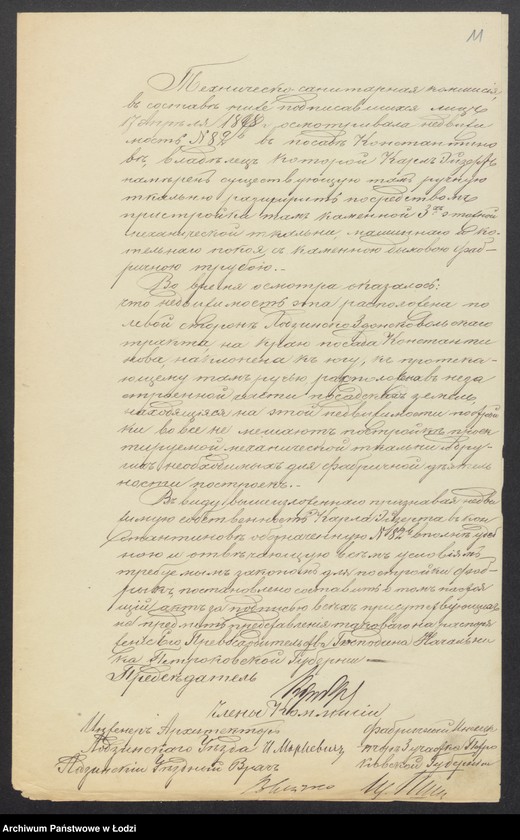 11
Техническо санитарная коммисія,
въ составѣ ниже подписавшихся лицъ
17 апрѣля 1898 г. осматривала недвижи
мость № 82 въ посадѣ Константино
вѣ, владѣлецъ которой Карлъ Эйзертъ
намѣренъ существующую тамъ ручную
ткальню расширить посредствомъ
пристройки тамъ каменной 3хъ этажной
механической ткальни машиннаго и ко-
тельнаго покоя съ каменною дымовою фаб-
ричною трубою.-
Во время осмотра оказалось:
что недвижимость эта расположена по
лѣвой сторонѣ Лодзинско Здонсковольскаго
тракта на краю посада Константи
нова наклонена къ югу, къ протека-
ющему тамъ ручью расположена въ неза
строенной части посадскихъ земель,
находящіяся на этой недвижимости построй
ки вовсе не мешаютъ постройкѣ проек
тируемой механической ткальни и дру-
гихъ необходимыхъ для фабричной дѣятель
ности построекъ.-
Въ виду вышеизложеннаго признавая недви
жимую собственность Карла Эйзерта въ Кон
стантиновѣ обозначенную № 82 вполнѣ удоб
ною и отвѣчающую всѣмъ условіямъ
требуемымъ закономъ для постройки фаб-
рикъ, постановлено составить въ томъ настоя
щій актъ за подписью всѣхъ присутствующихъ
на предметъ представленія таковаго на распоря
женіе Его Превосходительства Господина Начальни
ка Петроковской Губерніи —
Предсѣдатель
Члены Коммисіи
Инженеръ Архитекторъ
Лодзинскаго Уѣзда
Лодзинскій Уѣздный Врачъ
Фабричный Инспек
торъ Участка Петро
ковской Губерніи
Archiwum Państwowe w Łodzi